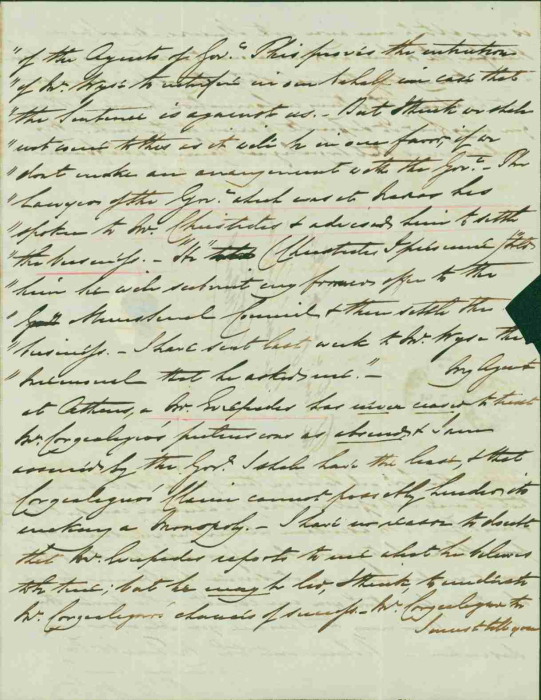 "of the Agents of Gov.t This proves the intention
"of Mr. Wyse to interfere in our behalf in case that
"the Sentence is against us. - But I think we shall
"not come to this as it will be in our favor, if we
"don't make an arrangement with the Gov.t - The
"Lawyer of the Gov.t which was at has
"spoken to Mr. Christides & advised him to settle
"the business. - "He" (Christides I presume) "tells
"him he will submit my former offer to the
" Ministerial Council & then settle the
"business. - I have sent last week to Mr. Wyse the
" that he asked me." - My Agent
at Athens, a Mr. has never ceased to treat
Mr. pretensions as absurd & I am
assured by the Gov.t I shall have the lease, & that
Claim cannot possibly hinder its
making a Monopoly. - I have no reason to doubt
that Mr. reports to me what he believes
to be true; but he may be led, I think, to underrate
Mr. chances of success. - Mr.
I must tell you